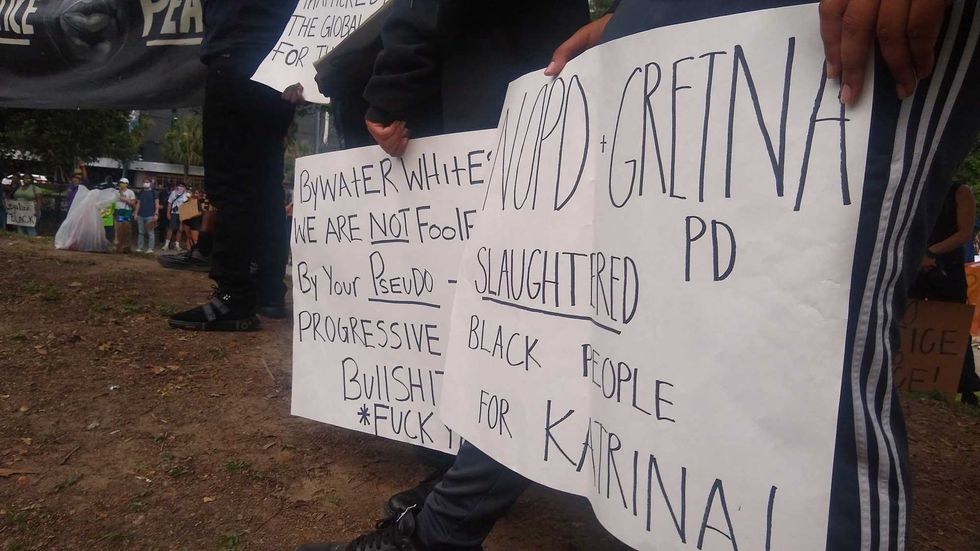 PEA
THE GLOBAL
FOR
BYWATER WHITES
WE ARE NOT FOOLE
BY YOUR PSEUDO -
PROGRESSIVE
BULLSHIT
*FUCK
NOPD + GRETNA
PD
SLAUGHTERED
BLACK PEOPLE
FOR KATRINA!
BLACK
ICE